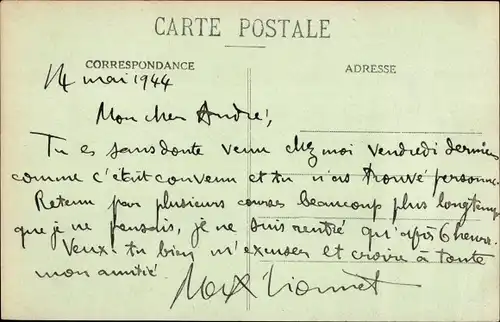 CARTE POSTALE
CORRESPONDANCE
ADRESSE
14 mai 1944
Mon cher André,
Tu es sans doute venu chez moi vendredi dernier
comme c'était convenu et tu n'as trouvé personne.
Retenu par plusieurs courses beaucoup plus longtemps
que je ne pensais, je ne suis rentré qu'après 6 heures.
Veux-tu bien m'excuser et croire à toute
mon amitié.